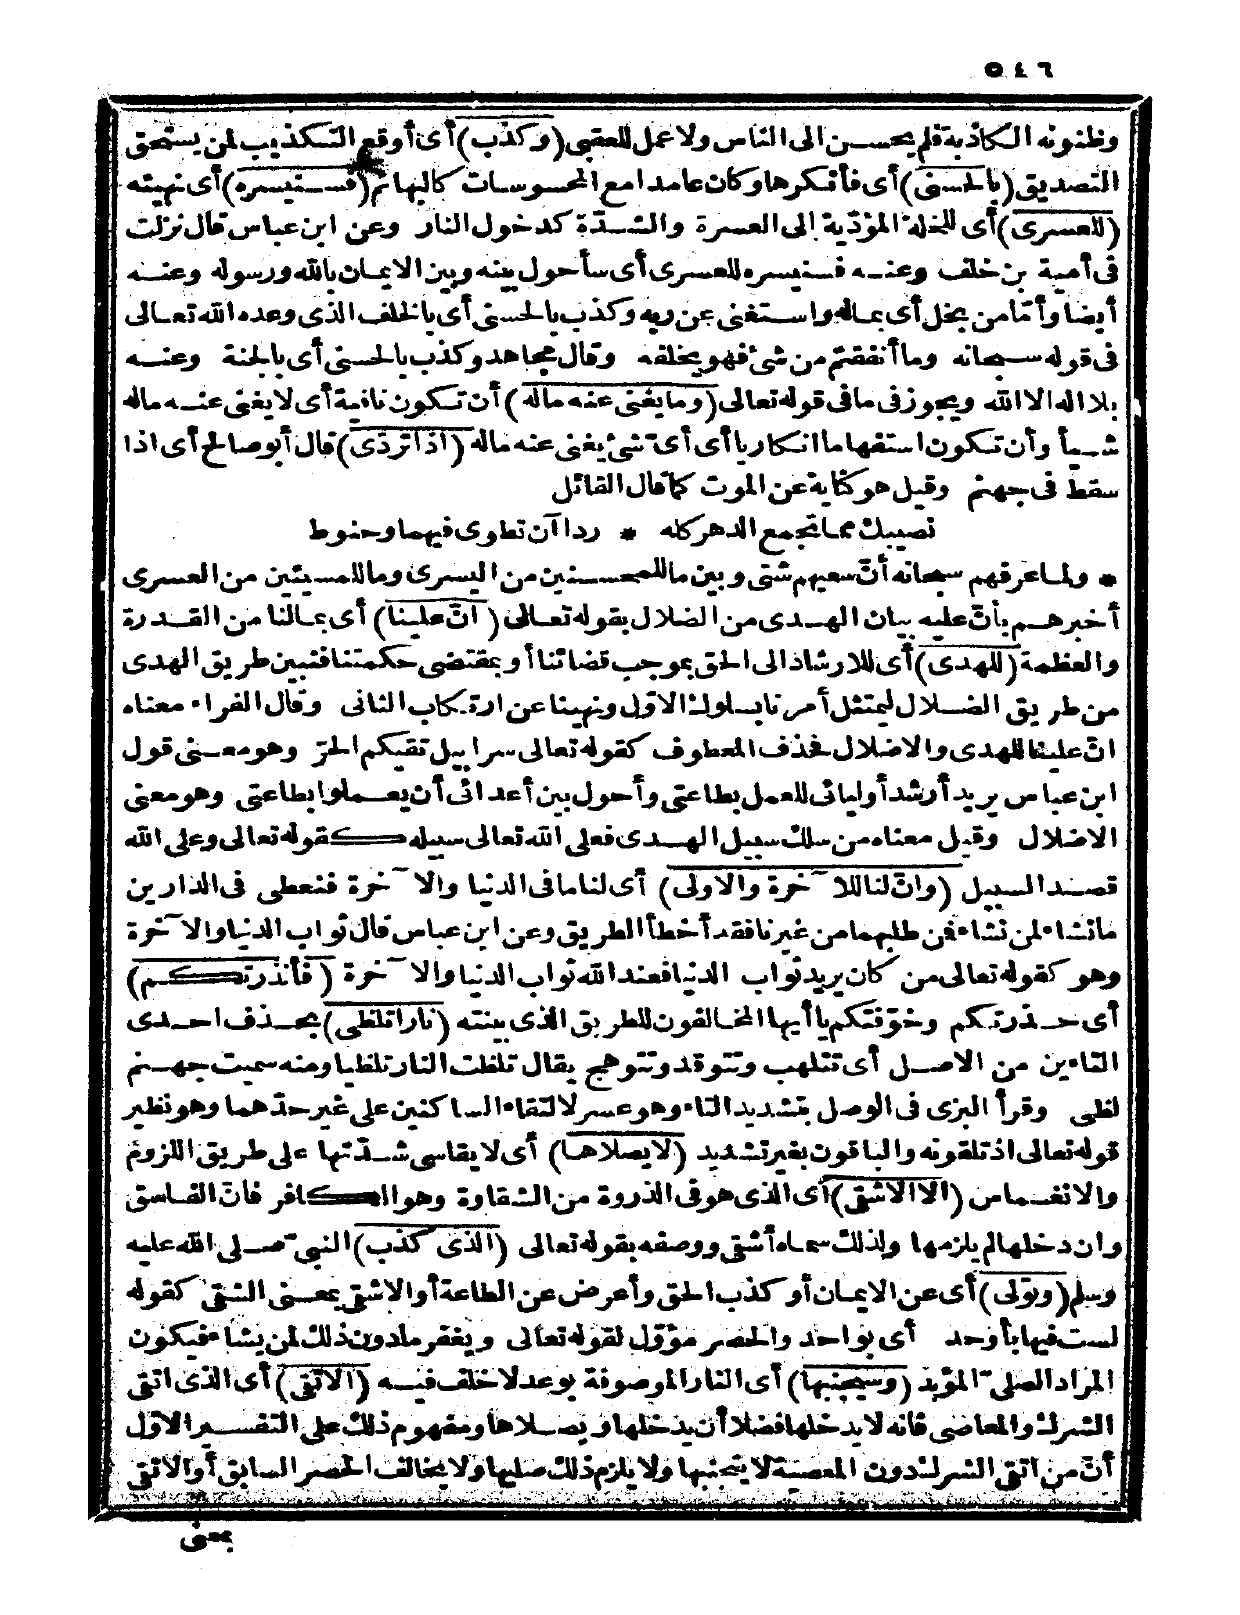 ٥٤٦
وظنونه الكاذبة فلم يحسن الى الناس ولا عمل للعقبى (وكذب) أى أوقع التكذيب لمن يستحق
التصديق (بالحسنى) أى فأنكرها وكان عامدا مع المحسوسات كالبهائم (فسنيسره) أى نهيئه
(للعسرى) أى للخلة المؤدّية إلى العسرة والشدّة كدخول النار وعن ابن عباس قال نزلت
فى أمية بن خلف وعنه فسنيسره للعسرى أى سأحول بينه وبين الايمان بالله ورسوله وعنه
أيضا وأمّا من بخل أى بماله واستغنى عن ربه وكذب بالحسنى أى بالخلف الذى وعده الله تعالى
فى قوله سبحانه وما أنفقتم من شئ فهو يخلفه وقال مجاهد وكذب بالحسنى أى بالجنة وعنه
بلا اله الا الله ويجوز فى ما فى قوله تعالى (وما يغنى عنه ماله) أن تكون نافية أى لا يغنى عنه ماله
شيأ وأن تكون استفهاما انكاريا أى أىّ شئ يغنى عنه ماله (اذا تردّى) قال أبو صالح أى اذا
سقط فى جهنم وقيل هو كناية عن الموت كما قال القائل
نصيبك مما تجمع الدهر كله * ردا آن تطوى فيهما وحنوط
* ولما عرفهم سبحانه أنّ سعيهم شتى وبين ما للمحسنين من اليسرى وما للمسيئين من العسرى
أخبرهم بأنّ عليه بيان الهدى من الضلال بقوله تعالى (انّ علينا) أى بمالنا من القدرة
والعظمة (للهدى) أى للارشاد الى الحق بموجب قضائنا أو بمقتضى حكمتنا فنبين طريق الهدى
من طريق الضلال ليمتثل أمرنا بسلوك الاوّل ونهينا عن ارتكاب الثانى وقال الفراء معناه
انّ علينا للهدى والاضلال فحذف المعطوف كقوله تعالى سرابيل تقيكم الحرّ وهو معنى قول
ابن عباس يريد أرشد أوليائى للعمل بطاعتى وأحول بين أعدائى أن يعملوا بطاعتى وهو معنى
الاضلال وقيل معناه من سلك سبيل الهدى فعلى الله تعالى سبيله كقوله تعالى وعلى الله
قصد السبيل (وانّ لنا للآخرة والاولى) أى لنا ما فى الدنيا والآخرة فنعطى فى الدارين
ما نشاء لمن نشاء فمن طلبهما من غيرنا فقد أخطأ الطريق وعن ابن عباس قال ثواب الدنيا والآخرة
وهو كقوله تعالى من كان يريد ثواب الدنيا فعند الله ثواب الدنيا والآخرة (فأنذرتكم)
أى حذرتكم وخوّفتكم يا أيها المخالفون للطريق الذى بينته (نارا تلظى) بحذف احدى
التاءين من الاصل أى تتلهب وتتوقد وتتوهج يقال تلظت النار تلظيا ومنه سميت جهنم
لظى وقرأ البزى فى الوصل بتشديد التاء وهو عسر لالتقاء الساكنين على غير حدّهما وهو نظير
قوله تعالى اذ تلقونه والباقون بغير تشديد (لا يصلاها) أى لا يقاسى شدّتها على طريق اللزوم
والانغماس (الا الاشقى) أى الذى هو فى الذروة من الشقاوة وهو الكافر فانّ الفاسق
وان دخلها لم يلزمها ولذلك سماه أشقى ووصفه بقوله تعالى (الذى كذب) النبى صلى الله عليه
وسلم (وتولى) أى عن الايمان أو كذب الحق وأعرض عن الطاعة أو الاشقى بمعنى الشقى كقوله
لست فيها بأوحد أى بواحد والحصر مؤوّل لقوله تعالى ويغفر ما دون ذلك لمن يشاء فيكون
المراد الصلى المؤبد (وسيجنبها) أى النار الموصوفة بوعد لا خلف فيه (الاتقى) أى الذى اتقى
الشرك والمعاصى فانه لا يدخلها فضلا أن يدخلها ويصلاها ومفهوم ذلك على التفسير الاوّل
أنّ من اتقى الشرك دون المعصية لا يتجنبها ولا يلزم ذلك صليها ولا يخالف الحصر السابق أو الاتقى
بمعنى